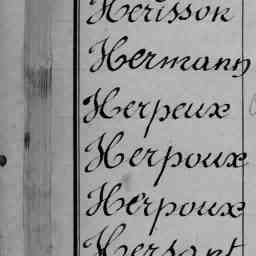 Hérisson
Hermann
Herpeux
Herpoux
Herpoux
Hersant